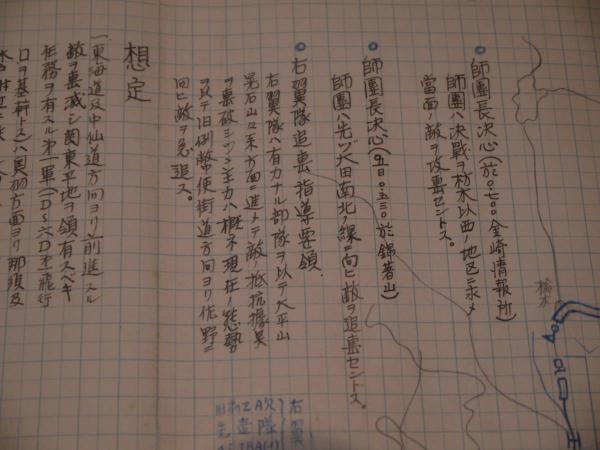 師團長決心(於〇七〇〇金崎情報所)
師團ハ決戰ヲ栃木以西ノ地区ニ求メ
當面ノ敵ヲ攻撃セントス。
師團長決心(五日〇五三〇於錦著山)
師團ハ先ヅ犬田南北ノ線ニ向ヒ敵ヲ追撃セントス。
右翼隊追撃指導要領
右翼隊ハ有力ナル部隊ヲ以テ大平山
晃石山々系方面ニ進メテ敵ノ抵抗據点
ヲ撃破シツヽ主力ハ概ネ現在ノ態勢
ヲ以テ旧例幣使街道方向ヨリ佐野ニ
向ヒ敵ヲ急追ス。
想定
一、東海道及中仙道方向ヨリ前進スル
敵ヲ撃滅シ関東平地ヲ領有スベキ
任務ヲ有スル第一軍(DS六D本飛行
口ヲ基幹トス)ハ奥羽方面ヨリ那須及
橋本
右翼